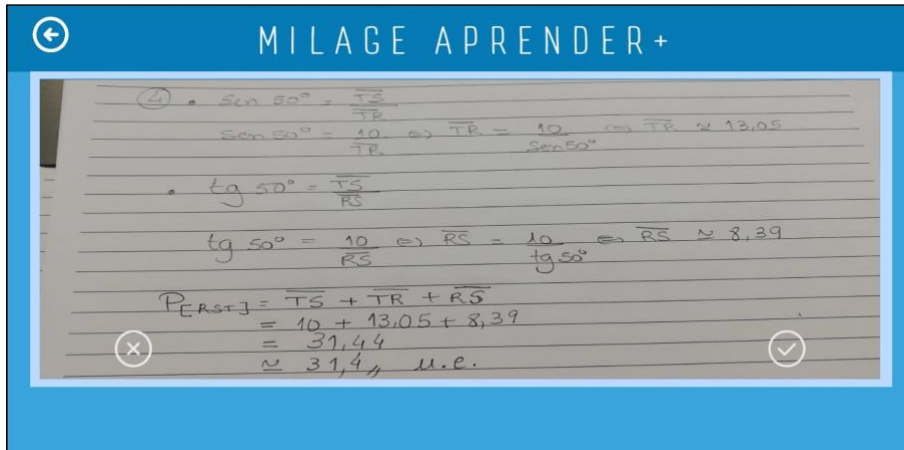 MILAGE APRENDER+
④ • Sen 50° = TS̅/TR̅
Sen 50° = 10/TR̅ ⇔ TR̅ = 10/Sen 50° ⇔ TR̅ ≃ 13,05
• tg 50° = TS̅/RS̅
tg 50° = 10/RS̅ ⇔ RS̅ = 10/tg 50° ⇔ RS̅ ≃ 8,39
P[RST] = TS̅ + TR̅ + RS̅
= 10 + 13,05 + 8,39
= 31,44
≃ 31,4,, u.c.